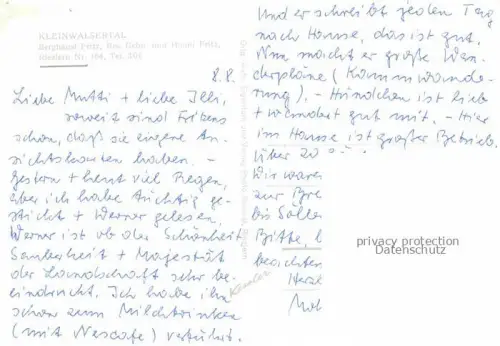 KLEINWALSERTAL
Berghaus Fritz, Bes. Gebh. und Fritz,
Riezlern Nr. 164, Tel. 304
8.8.
Liebe Mutti + liebe Illi,
soweit sind Fritzens
schon, daß sie eigene An-
sichtskarten haben. –
Gestern + heut viel Regen,
aber ich habe tüchtig ge-
stickt + Werner gelesen.
Werner ist ob der Schönheit
Sauberkeit + Majestät
der Landschaft sehr be-
eindruckt. Ich habe ihn
schon zum Milchtrinken
(mit Nescafe) verführt.
Und er schreibt jeden Tag
nach Hause, das ist gut.
Nun macht er große Wan-
derpläne (Kammwande-
rung). – Hündchen ist lieb
+ wandert gut mit. – Hier
im Hause ist großer Betrieb.
Über 20
Wir waren
zur Bre
bis Söller
Bitte,
beachten
Herzl
privacy protection
Datenschutz